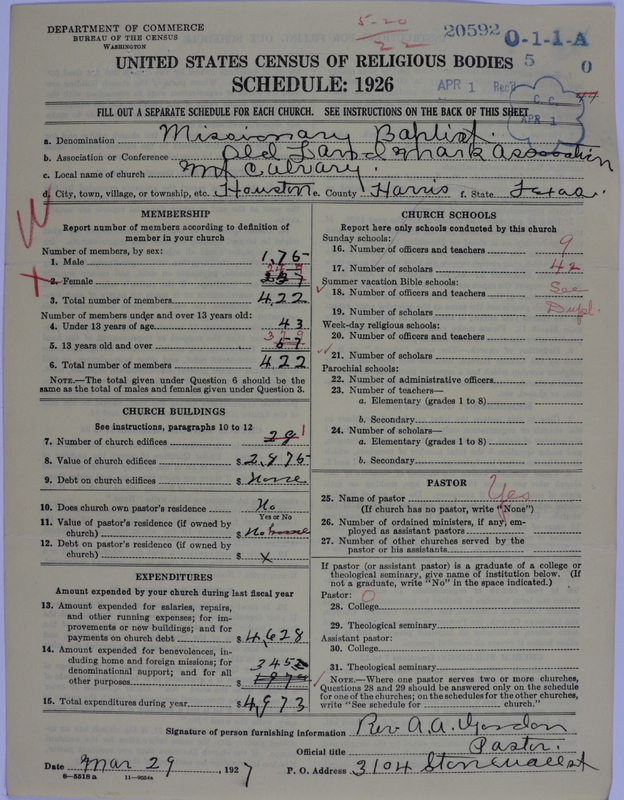 DEPARTMENT OF COMMERCE
BUREAU OF THE CENSUS
WASHINGTON
5-20
22
20592
0-1-1-A
UNITED STATES CENSUS OF RELIGIOUS BODIES
5
0
SCHEDULE: 1926
APR 1 Rec'd
C. C.
APR 1
44
FILL OUT A SEPARATE SCHEDULE FOR EACH CHURCH. SEE INSTRUCTIONS ON THE BACK OF THIS SHEET
a. Denomination Missionary Baptist.
b. Association or Conference Old Land mark Association
c. Local name of church Mt Calvary.
d. City, town, village, or township, etc. Houston e. County Harris f. State Texas.
MEMBERSHIP
Report number of members according to definition of
member in your church
Number of members, by sex:
1. Male 1,75
2. Female
3. Total number of members 422
Number of members under and over 13 years old:
4. Under 13 years of age 43
5. 13 years old and over 379
6. Total number of members 422
NOTE.—The total given under Question 6 should be the
same as the total of males and females given under Question 3.
CHURCH BUILDINGS
See instructions, paragraphs 10 to 12
7. Number of church edifices 1
8. Value of church edifices $ 2,875
9. Debt on church edifices $ None
10. Does church own pastor's residence? No
Yes or No
11. Value of pastor's residence (if owned by
church) $ No
12. Debt on pastor's residence (if owned by
church) $ X
EXPENDITURES
Amount expended by your church during last fiscal year
13. Amount expended for salaries, repairs,
and other running expenses; for im-
provements or new buildings; and for
payments on church debt $ 4,628
14. Amount expended for benevolences, in-
cluding home and foreign missions; for
denominational support; and for all
other purposes $ 345
15. Total expenditures during year $ 4973
CHURCH SCHOOLS
Report here only schools conducted by this church
Sunday schools:
16. Number of officers and teachers 9
17. Number of scholars 42
Summer vacation Bible schools:
18. Number of officers and teachers See
19. Number of scholars Dupl.
Week-day religious schools:
20. Number of officers and teachers
21. Number of scholars
Parochial schools:
22. Number of administrative officers
23. Number of teachers—
a. Elementary (grades 1 to 8)
b. Secondary
24. Number of scholars—
a. Elementary (grades 1 to 8)
b. Secondary
PASTOR
25. Name of pastor Yes
(If church has no pastor, write "None")
26. Number of ordained ministers, if any, em-
ployed as assistant pastors
27. Number of other churches served by the
pastor or his assistants
If pastor (or assistant pastor) is a graduate of a college or
theological seminary, give name of institution below. (If
not a graduate, write "No" in the space indicated.)
Pastor: 0
28. College
29. Theological seminary
Assistant pastor:
30. College
31. Theological seminary
NOTE.—Where one pastor serves two or more churches,
Questions 28 and 29 should be answered only on the schedule
for one of the churches; on the schedules for the other churches,
write "See schedule for church."
Signature of person furnishing information Rev A. A. Gordon
Official title Pastor.
Date Mar 29, 1927 P. O. Address 3104 Stonewall st
8-5518a 11-9054a